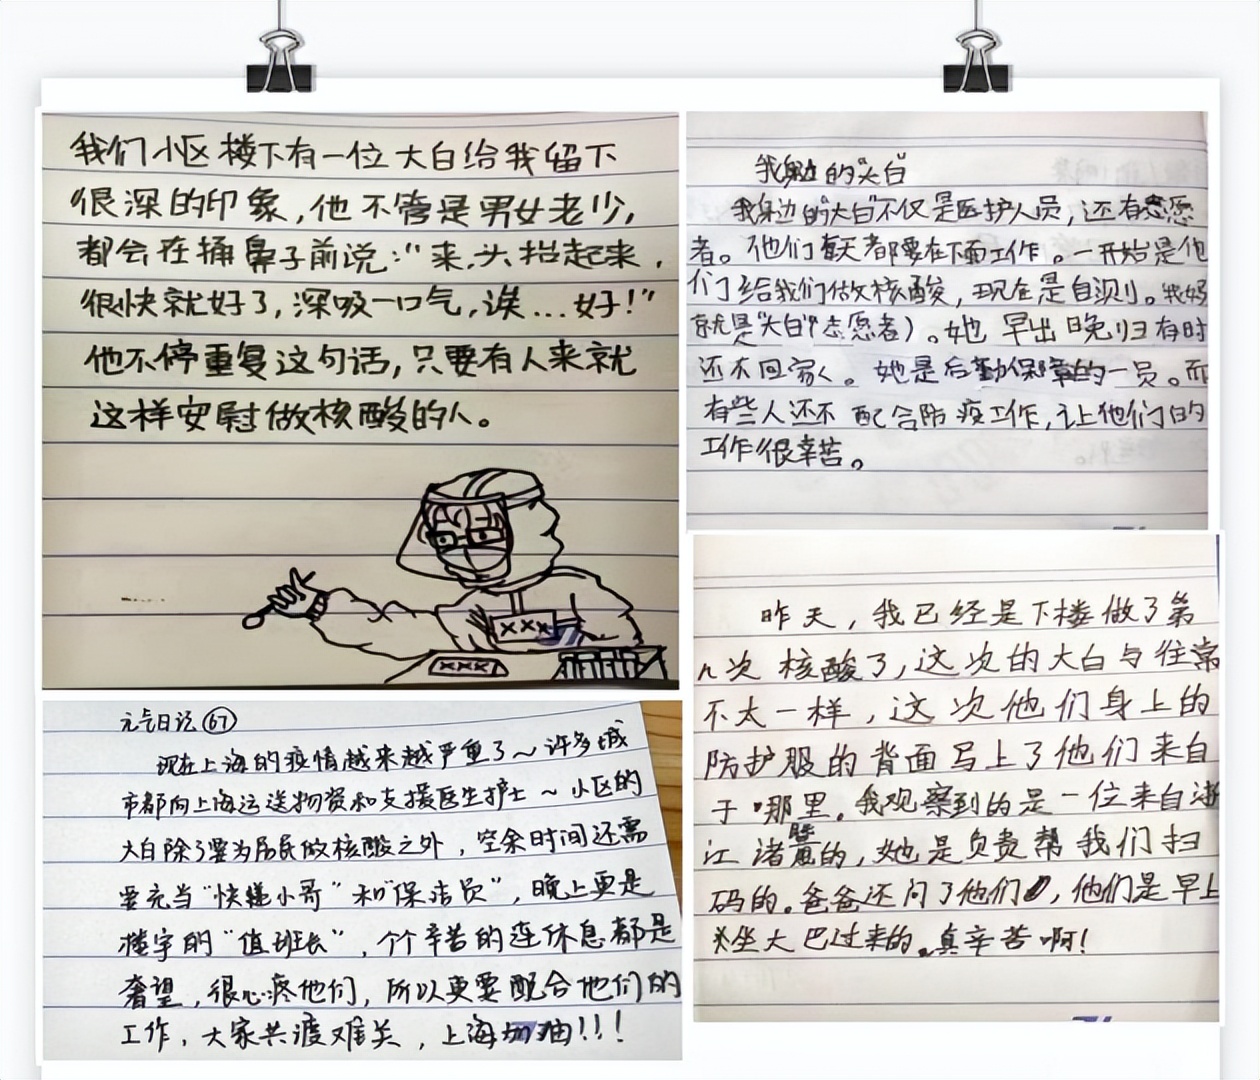 我们小区楼下有一位大白给我留下
很深的印象,他不管是男女老少,
都会在捅鼻子前说:“来,头抬起来,
很快就好了,深吸一口气,诶...好!”
他不停重复这句话,只要有人来就
这样安慰做核酸的人。
XXX
XXX
我身边的“大白”
我身边的“大白”不仅是医护人员,还有志愿
者。他们每天都要在下面工作。一开始是他
们给我们做核酸,现在是自测。我妈
就是“大白”(志愿者)。她早出晚归有时
还不回家。她是后勤保障的一员。而
有些人还不配合防疫工作,让他们的
工作很辛苦。
元气日记67
现在上海的疫情越来越严重了~许多城
市都向上海运送物资和支援医生护士~小区的
大白除了要为居民做核酸之外,空余时间还需
要充当“快递小哥”和“保洁员”,晚上更是
楼宇的“值班长”,个个辛苦的连休息都是
奢望,很心疼他们,所以更要配合他们的
工作,大家共渡难关,上海加油!!!
昨天,我已经是下楼做了第
n次核酸了,这次的大白与往常
不太一样,这次他们身上的
防护服的背面写上了他们来自
于哪里。我观察到的是一位来自浙
江诸暨的,她是负责帮我们扫
码的。爸爸还问了他们,他们是早上
坐大巴过来的。真辛苦啊!